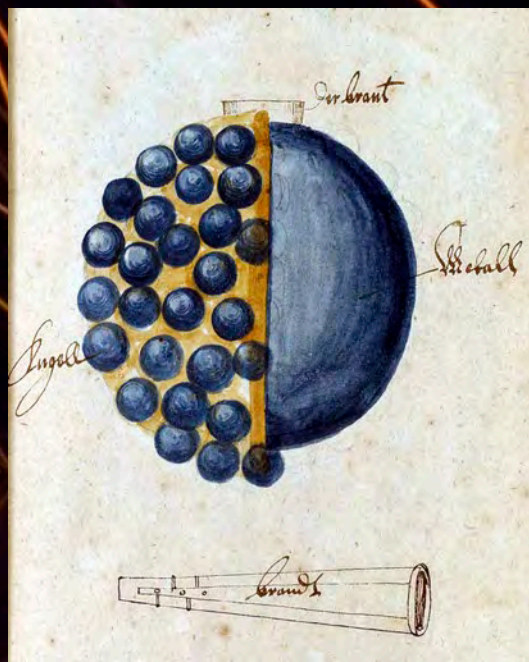 Der brant
Metall
Kugell
brandt